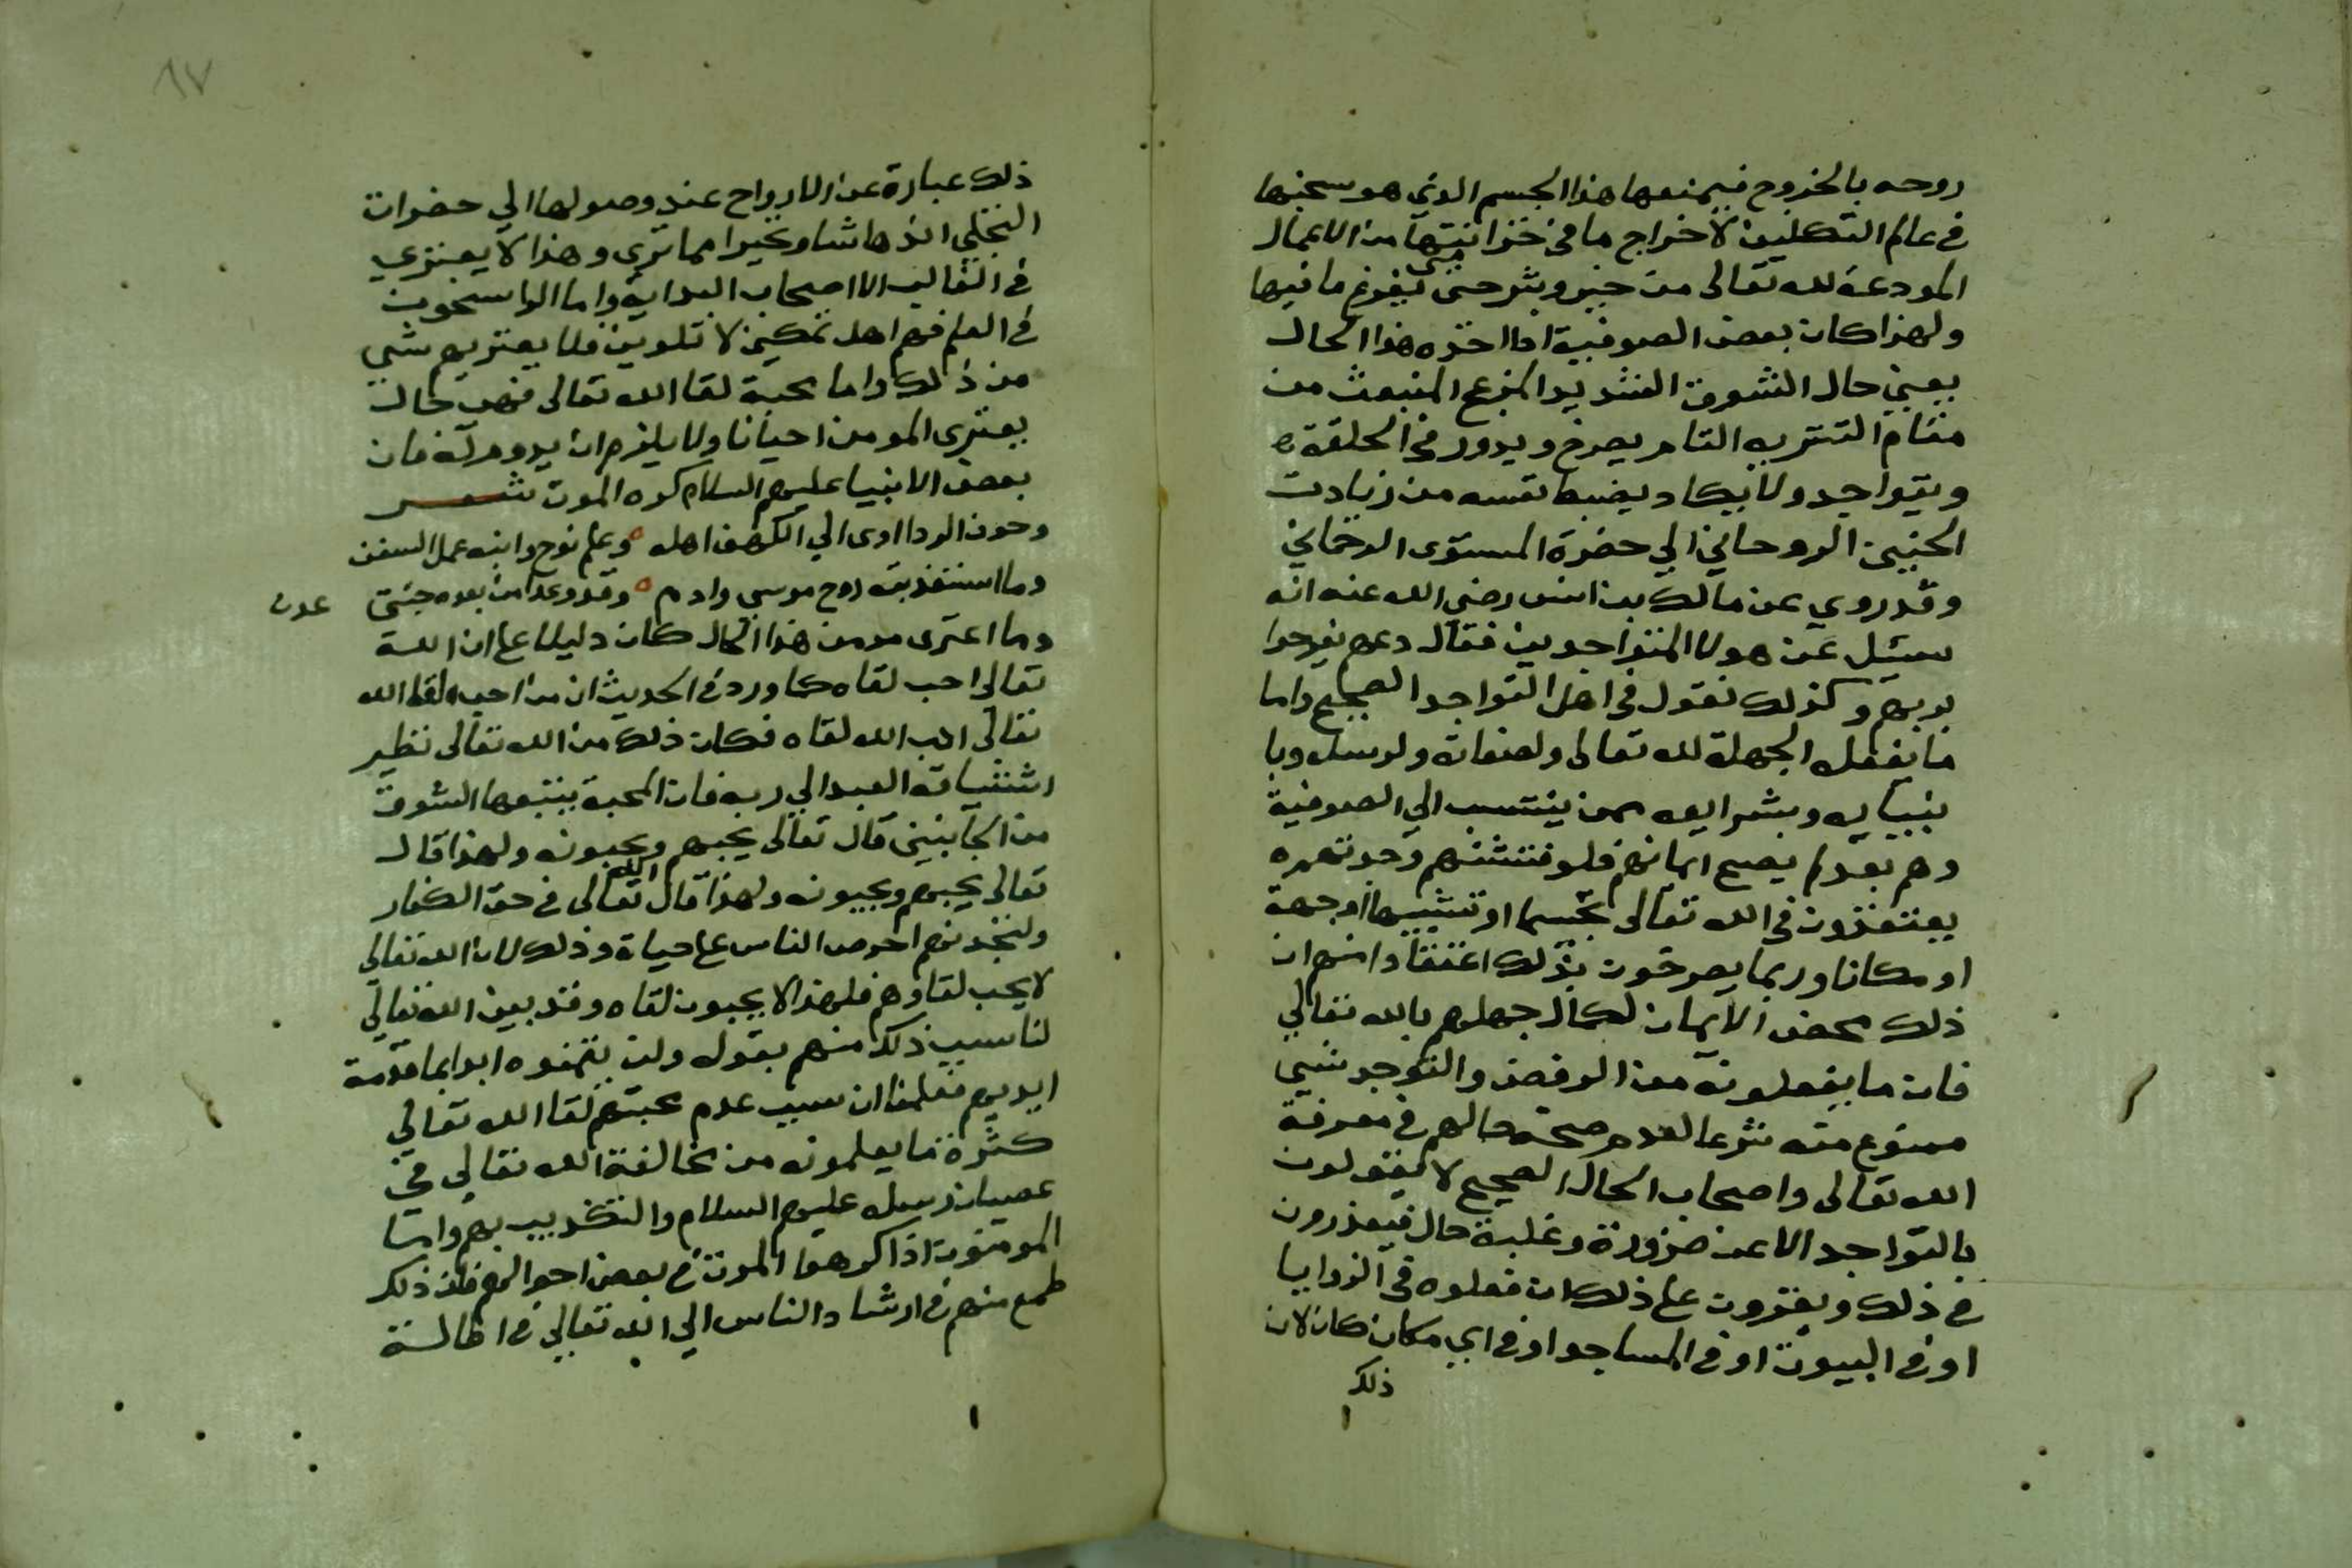 روحه بالخروج فيمنعها هذا الجسم الذي هو سجنها
في عالم التكليف لاخراج ما في خزانتها من الاعمال
المودعة لله تعالى من خير وشر حتى يفرغ ما فيها
ولهذا كان بعض الصوفية اذا اخذه هذا الحال
يعني حال الشوق الشديد المزعج المنبعث من
مقام التقريب التام يصرخ ويدور في الحلقة
ويتواجد ولا يكاد يضبط نفسه من زيادت
الحنين الروحاني الى حضرة المستوى الرحماني
وقد روي عن مالك بن انس رضي الله عنه انه
سئيل عن هولا المتواجدين فقال دعهم يفرحوا
بربهم وكذلك نقول في اهل التواجد الصحيح واما
ما يفعله الجهلة لله تعالى ولصفاته ولرسله وبا
نبيايه وبشرايعه ممن ينتسب الي الصوفية
وهم بعد لم يصح ايمانهم فلو فتشتهم وجدتهم
يعتقدون في الله تعالى تجسما او تشبيها او جهة
او مكانا وربما يصرخون بذلك اعتقادا منهم ان
ذلك محض الايمان لكمال جهلهم بالله تعالي
فان ما يفعلونه من الرقص والتوجد شيي
ممنوع منه شرعا لعدم صحة حالهم في معرفة
الله تعالى واصحاب الحال الصحيح لا يقولون
بالتواجد الا عن ضرورة وغلبة حال فيعذرون
في ذلك ويقرون على ذلك ان فعلوه في الزوايا
او في البيوت او في المساجد او في اي مكان كان لان
ذلك
٨٧
ذلك عبارة عن الارواح عند وصولها الي حضرات
التجلي اندهاشا وتحيرا مما تري وهذا لا يعتري
في الغالب الا اصحاب البداية واما الراسخون
في العلم فهم اهل تمكين لا تلوين فلا يعتريهم شي
من ذلك واما محبة لقا الله تعالى فهي حال
يعتري المومن احيانا ولا يلزم ان يدوم له فان
بعض الانبيا عليهم السلام كره الموت شعر
وخوف الردا اوى الي الكهف اهله ه وعلم نوح وابنه عمل السفن
وما استعذبته روح موسى وادم ه وقد وعدا من بعده جنتي
عدن
وما اعترى مومن هذا الحال كان دليلا على ان الله
تعالي احب لقاه كما ورد في الحديث ان من احب لقا الله
تعالى احب الله لقاه فكان ذلك من الله تعالى نظير
اشتياقه العبد الي ربه فان المحبة يتبعها الشوق
من الجانبين قال تعالى يحبهم ويحبونه ولهذا قال
تعالى يحبهم ويحبونه ولهذا قال الله تعالى في حق الكفار
ولتجدنهم احرص الناس على حياة وذلك لان الله تعالي
لا يحب لقاوهم فلهذا لا يحبون لقاه وقد بين الله تعالي
لنا سبب ذلك منهم بقوله ولن يتمنوه ابدا بما قدمت
ايديهم فعلمنا ان سبب عدم محبتهم لقا الله تعالي
كثرة ما يعلمونه من مخالفة الله تعالي في
عصيان رسله عليهم السلام والتكذيب بهم واما
المومنون اذا كرهوا الموت في بعض احوالهم فان ذلك
طمع منهم في ارشاد الناس الي الله تعالي في اطالة